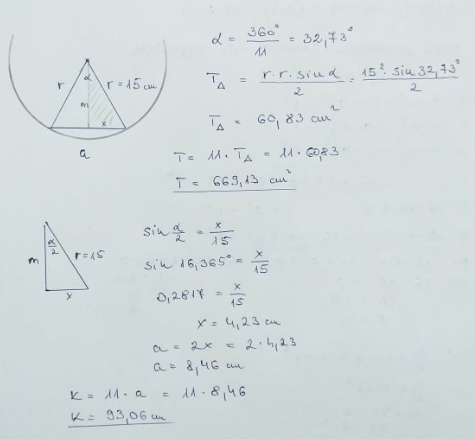 α = 360° / 11 = 32,73°
r α r = 15 cm
m x
a
T△ = r·r·sin α / 2 = 15²·sin 32,73° / 2
T△ = 60,83 cm²
T = 11·T△ = 11·60,83
T = 669,13 cm²
α/2
m r=15
x
sin α/2 = x/15
sin 16,365° = x/15
0,2817 = x/15
x = 4,23 cm
a = 2x = 2·4,23
a = 8,46 cm
K = 11·a = 11·8,46
K = 93,06 cm